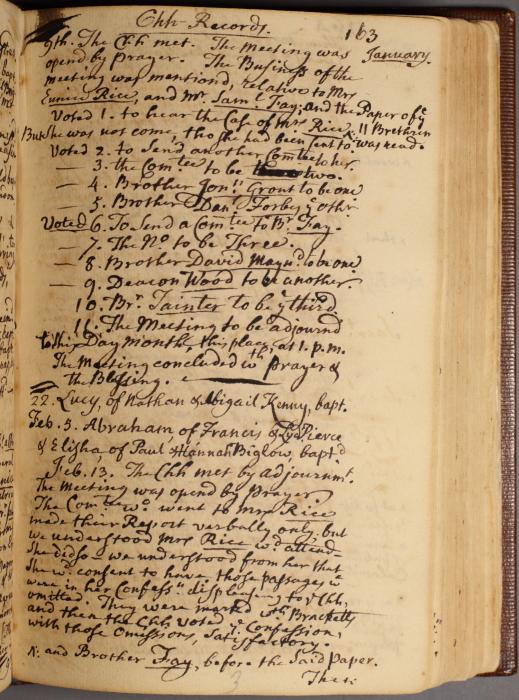 Chh Records.
163
9th. The Chh met. The Meeting was January.
opend by Prayer. The Business of the
meeting was mentiond, relative to Mrs
Eunice Rice, and Mr. Saml Fay; and the Paper of ye
Voted 1. to hear the Case of Mrs Rice. 11 Brethren
But she was not come, tho she had been sent to. was read.
Voted 2. to Send another Comtee to her.
— 3. the Comtee to be two.
— 4. Brother Jonn Grout to be one
— 5. Brother Danl Forbes ye othr.
Voted 6. To Send a Comtee to Br. Fay.
— 7. The No. to be Three.
— 8. Brother David Maynd to be one
— 9. Deacon Wood to be another
10. Br. Tainter to be ye third
11. The Meeting to be adjournd
to this Day month, this place, at 1. p.m.
The Meeting concluded wth prayer &
the Blessing.
22. Lucy, of Nathan & Abigail Kenny, bapt.
Feb. 5. Abraham, of Francis & Lyd Pierce
& Elisha, of Paul & Hannah Biglow, baptd
Feb. 13. The Chh met by adjournmt.
The Meeting was opend by Prayer.
The Comtee wo went to Mrs Rice
made their Report verbally only; but
we understood Mrs Rice wd attend —
She did so — we understood from her that
She wd consent to have those passages wh
were in her Confessn displeasing to ye Chh,
omitted. They were marked wth Bracketts
and then the Chh voted ye Confession,
with those Omissions, Satisfactory.
and Brother Fay, before the Said Paper.
3
The